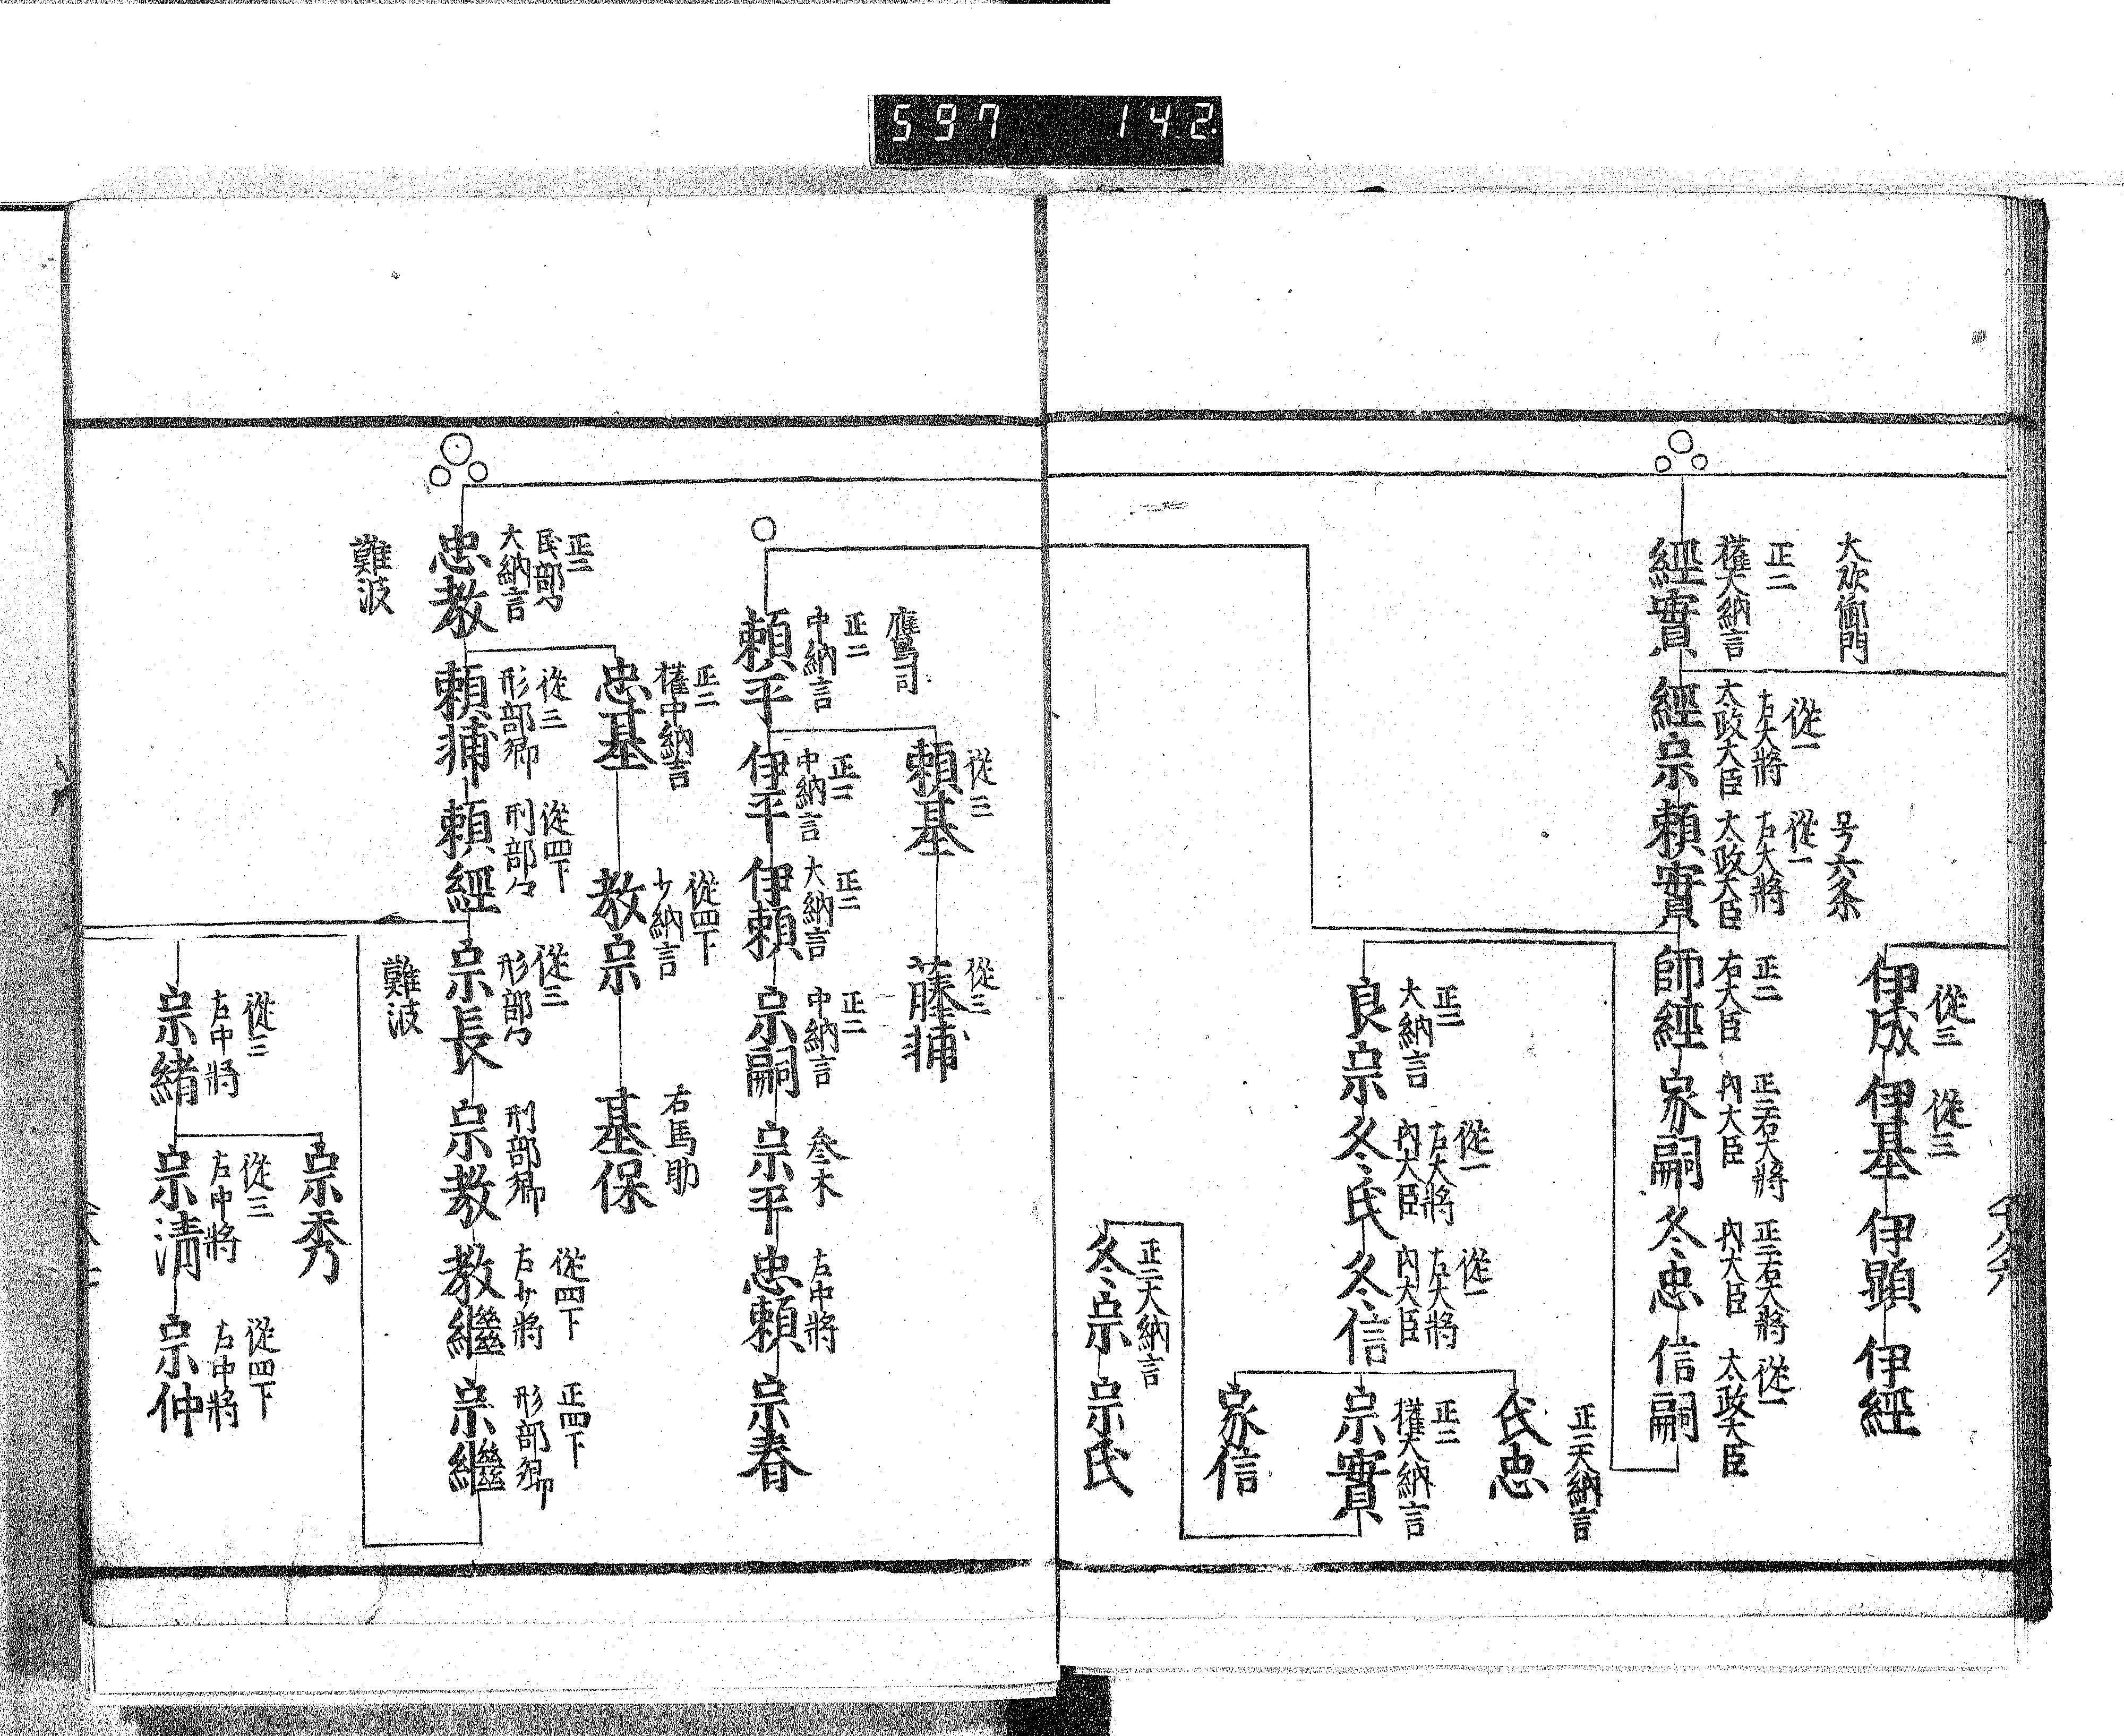 597 142
大炊御門
正二
權大納言
經實
從一
左大將
太政大臣
經宗
号六条
從一
左大將
太政大臣
賴實
正二
右大臣
師經
正二右大將
內大臣
家嗣
正二右大將
內大臣
冬忠
從一
太政大臣
信嗣
從三
伊成
從三
伊基
伊顕
伊經
正二
大納言
良宗
從一
左大將
內大臣
冬氏
從一
左大將
內大臣
冬信
正二大納言
氏忠
正二
權大納言
宗實
家信
正二大納言
冬宗
宗氏
鷹司
正二
中納言
賴平
從三
賴基
從三
藤輔
正二
中納言
伊平
正二
大納言
伊賴
正二
中納言
宗嗣
叅木
宗平
左中將
忠賴
宗春
正二
民部卿
大納言
忠教
難波
正二
權中納言
忠基
從四下
少納言
教宗
右馬助
基保
從三
形部卿
賴輔
從四下
刑部卿
賴經
從三
形部卿
宗長
難波
刑部卿
宗教
從四下
左少將
教繼
正四下
形部卿
宗繼
從三
左中將
宗緒
宗秀
從三
左中將
宗清
從四下
左中將
宗仲